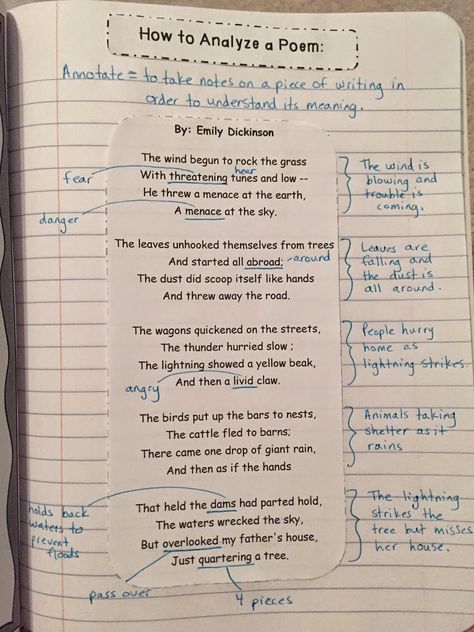 How to Analyze a Poem:
Annotate = to take notes on a piece of writing in
order to understand its meaning.
By: Emily Dickinson
The wind begun to rock the grass
hear
fear
With threatening tunes and low --
He threw a menace at the earth,
danger
A menace at the sky.
The wind is
blowing and
trouble is
coming.
The leaves unhooked themselves from trees
And started all abroad;
- around
The dust did scoop itself like hands
And threw away the road.
Leaves are
falling and
the dust is
all around.
The wagons quickened on the streets,
The thunder hurried slow;
The lightning showed a yellow beak,
angry
And then a livid claw.
People hurry
home as
lightning strikes.
The birds put up the bars to nests,
The cattle fled to barns;
There came one drop of giant rain,
And then as if the hands
Animals taking
shelter as it
rains
That held the dams had parted hold,
holds back
waters to
prevent
floods
The waters wrecked the sky,
But overlooked my father's house,
Just quartering a tree.
The lightning
strikes the
tree but misses
her house.
pass over
4 pieces